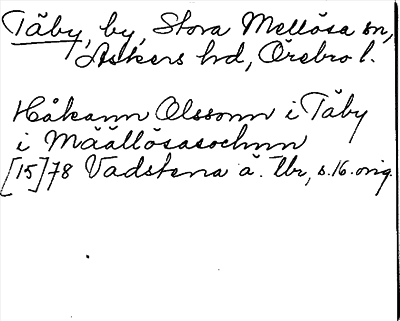 Täby, by, Stora Mellösa sn,
Askers hd, Örebro l.
Håkann Olssonn i Täby
i Määllösasochnn
[15]78 Vadstena ä. lbr, s. 16. orig.